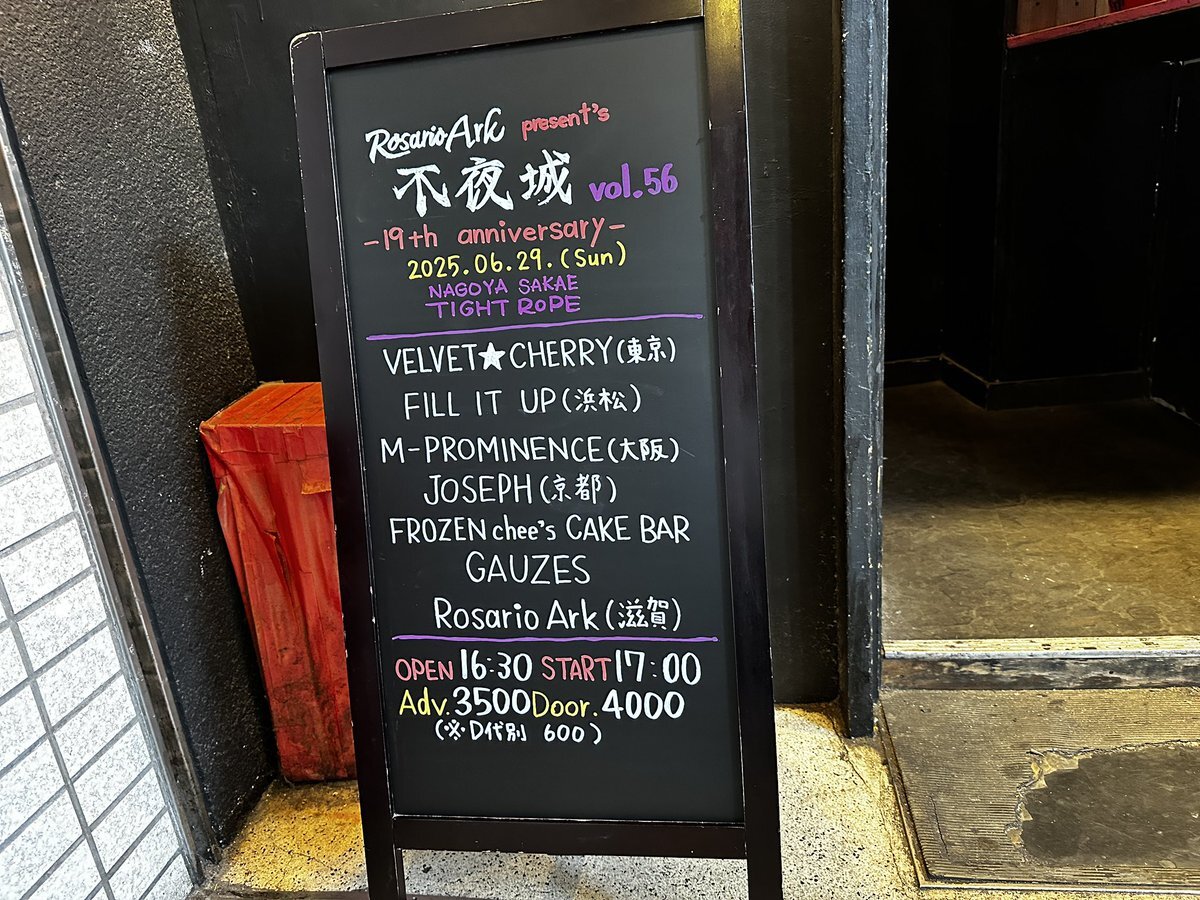 Rosario Ark present's
不夜城 vol.56
-19th anniversary-
2025.06.29.(Sun)
NAGOYA SAKAE
TIGHT ROPE
VELVET★CHERRY(東京)
FILL IT UP(浜松)
M-PROMINENCE(大阪)
JOSEPH(京都)
FROZEN chee's CAKE BAR
GAUZES
Rosario Ark(滋賀)
OPEN 16:30 START 17:00
Adv.3500 Door.4000
(※D代別 600)